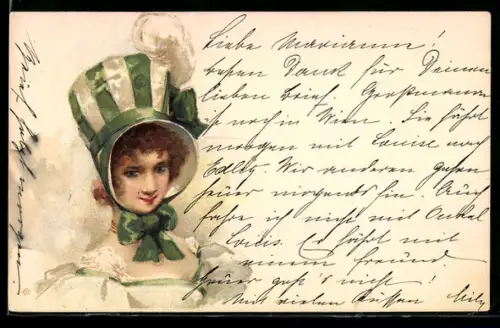 Liebe Mariann!
besten Dank für Deinen
lieben Brief. Großmama
ist noch in Wien. Sie fährt
morgen mit Louise nach
Edlitz. Wir anderen gehen
heuer nirgends hin. Auch
fahre ich nicht mit Onkel
Louis. Er fährt mit
einem Freund.
heuer geht's nicht!
Mit vielen Küssen
Brief folgt morgen